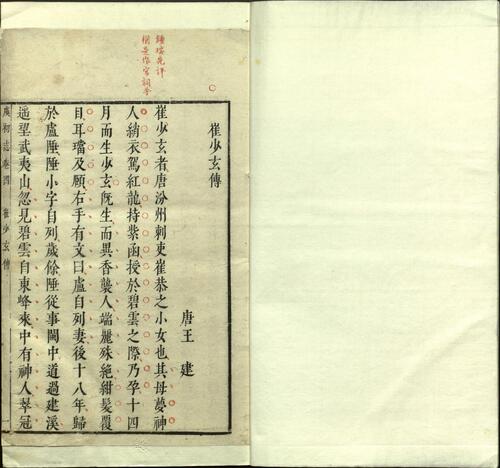 鍾瑞先評
崔少玄傳
唐王 建
崔少玄者唐汾州刺吏崔恭之小女也其母夢神
人綃衣駕紅龍持紫函授於碧雲之際乃孕十四
月而生少玄旣生而異香襲人端麗殊絕紺髮覆
目耳璫及頤右手有文曰盧自列妻後十八年歸
於盧陲陲小字自列歲餘陲從事閩中道過建溪
遥望武夷山忽見碧雲自東峰來中有神人翠冠
虞初志卷四 崔少玄傳